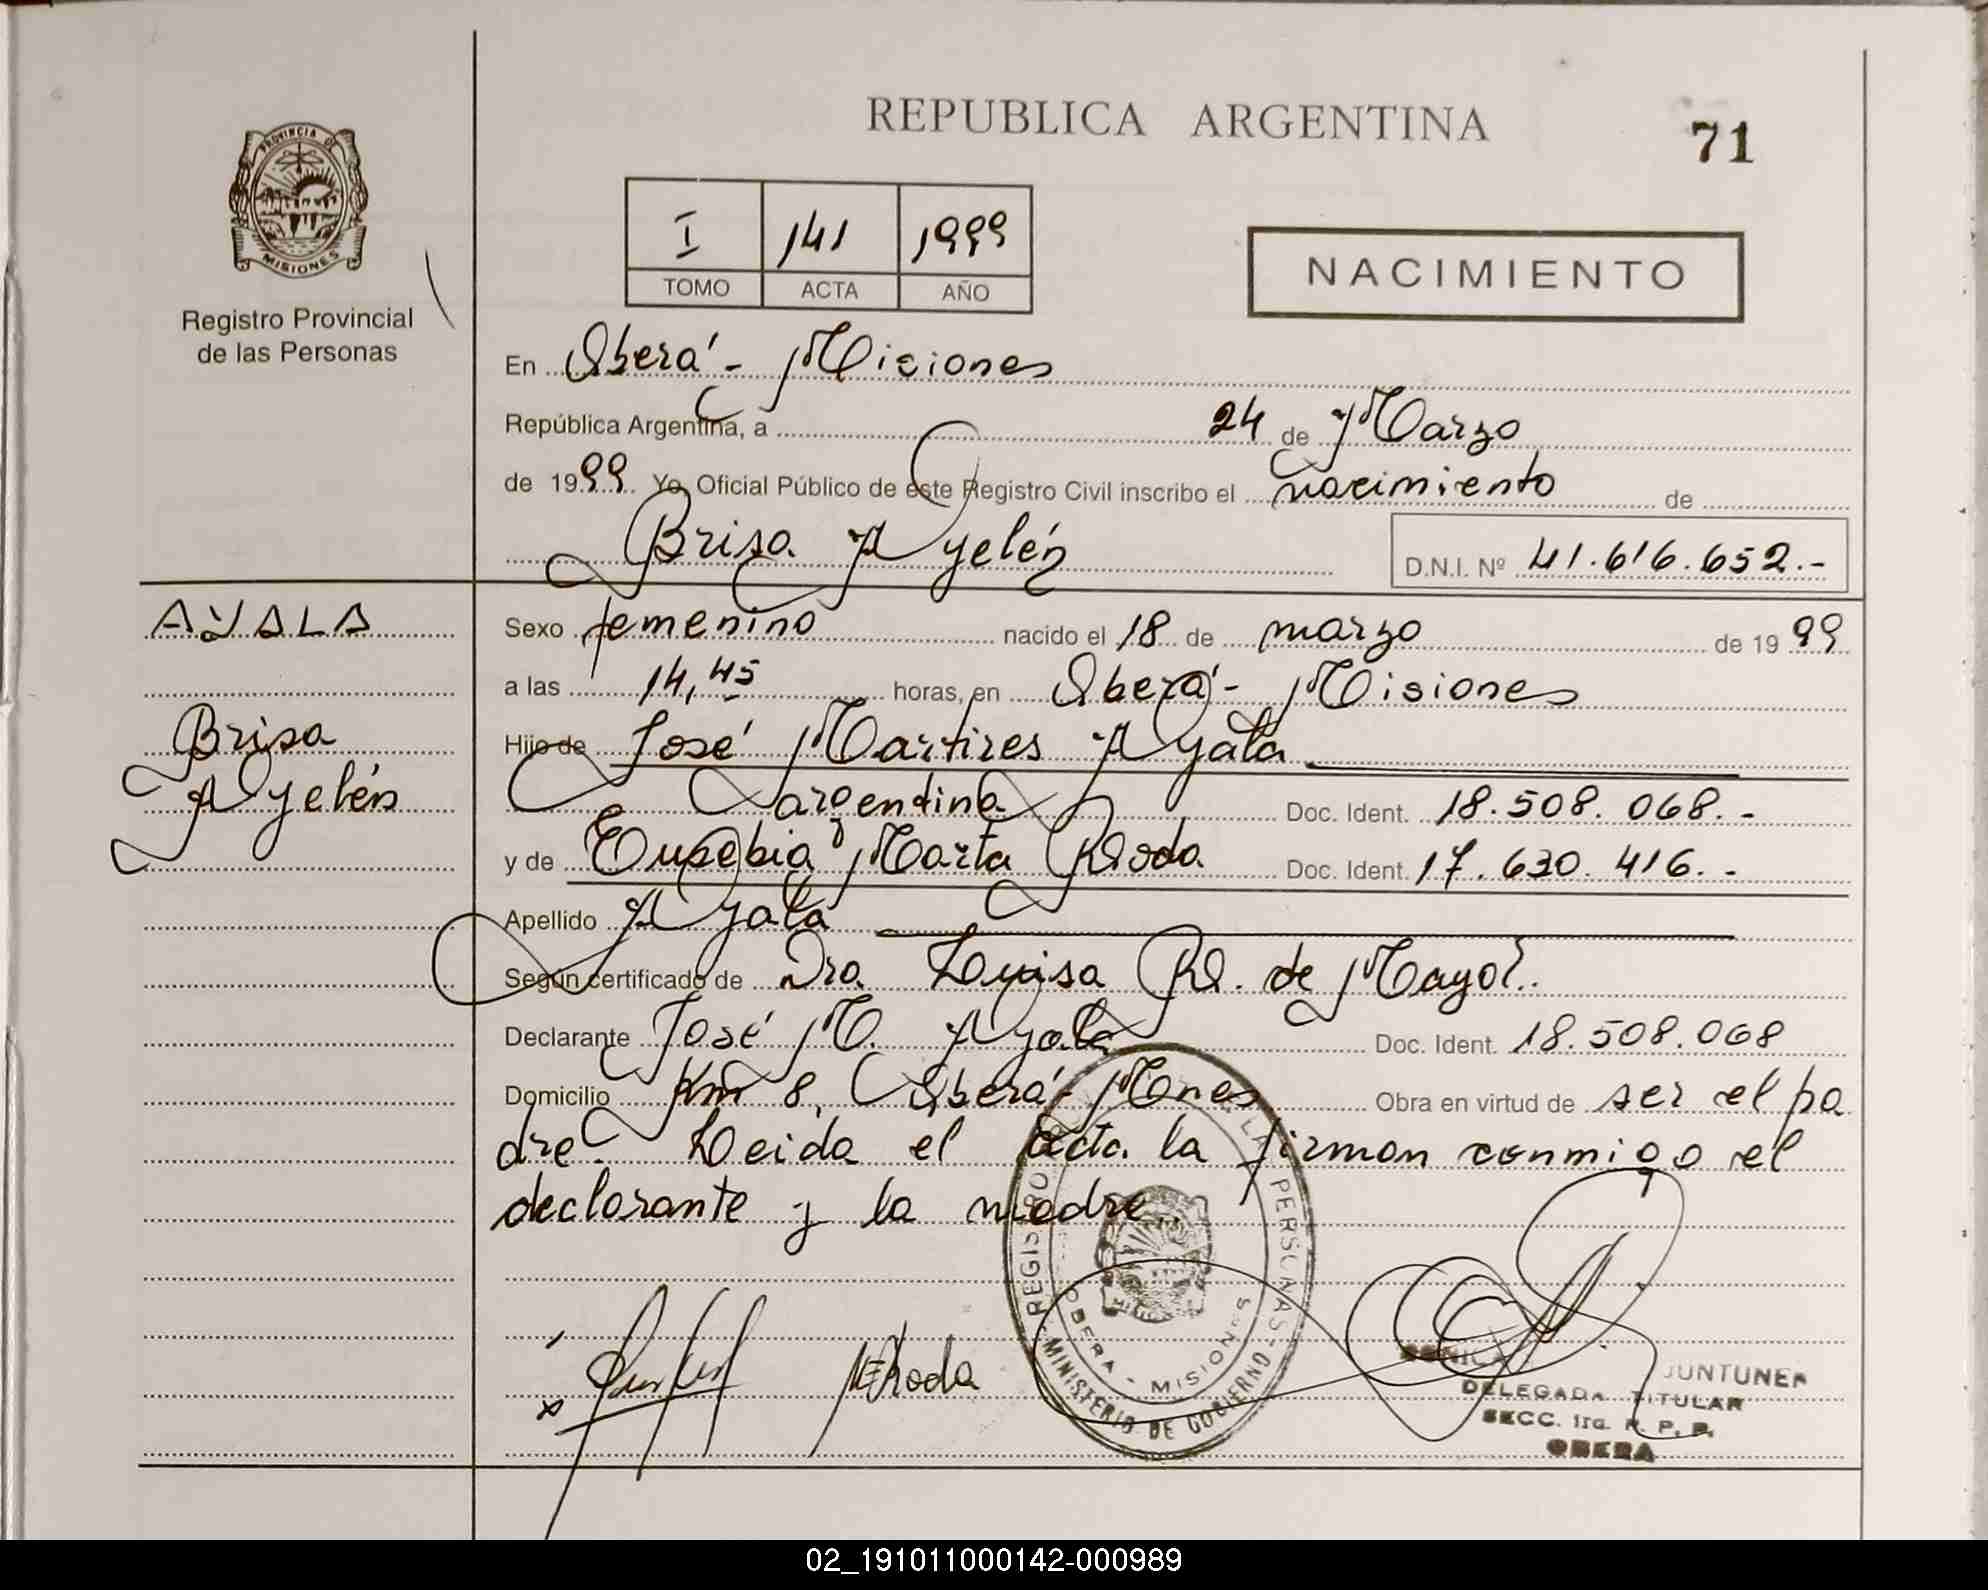 REPUBLICA ARGENTINA
71
PROVINCIA DE
MISIONES
Registro Provincial
de las Personas
I 141 1999
TOMO ACTA AÑO
NACIMIENTO
En Oberá - Misiones
República Argentina, a 24 de Marzo
de 1999 Yo, Oficial Público de este Registro Civil inscribo el nacimiento de
Brisa Ayelén D.N.I. Nº 41.616.652.-
AYALA
Brisa
Ayelén
Sexo femenino nacido el 18 de marzo de 1999
a las 14,45 horas, en Oberá - Misiones
Hijo de José Martires Ayala
argentino Doc. Ident. 18.508.068.-
y de Eusebia Marta Roda Doc. Ident. 17.630.416.-
Apellido Ayala
Según certificado de Dra. Luisa R. de Mayol.
Declarante José M. Ayala Doc. Ident. 18.508.068
Domicilio Km 8, Oberá - Mnes Obra en virtud de ser el pa
dre. Leida el acta la firman conmigo el
declarante y la madre
MERoda
REGISTRO LAS PERSONAS - MINISTERIO DE GOBIERNO
MISIONES
OBERA - MISIONES
DELEGADA TITULAR
SECC. 1ra. R. P. P.
OBERA
02_191011000142-000989